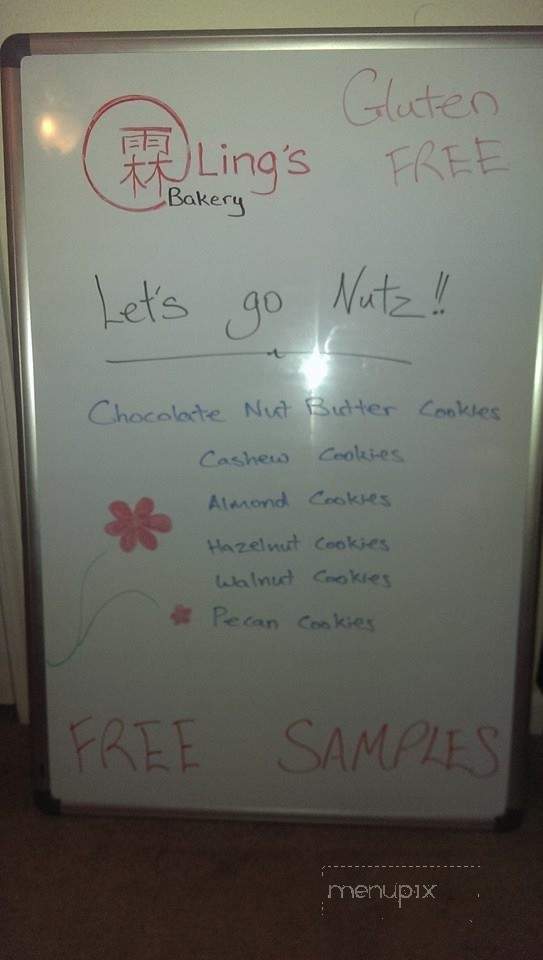 霖 Ling's
Bakery
Gluten
FREE
Let's go Nutz!!
Chocolate Nut Butter Cookies
Cashew Cookies
Almond Cookies
Hazelnut Cookies
Walnut Cookies
Pecan Cookies
FREE SAMPLES
menupix